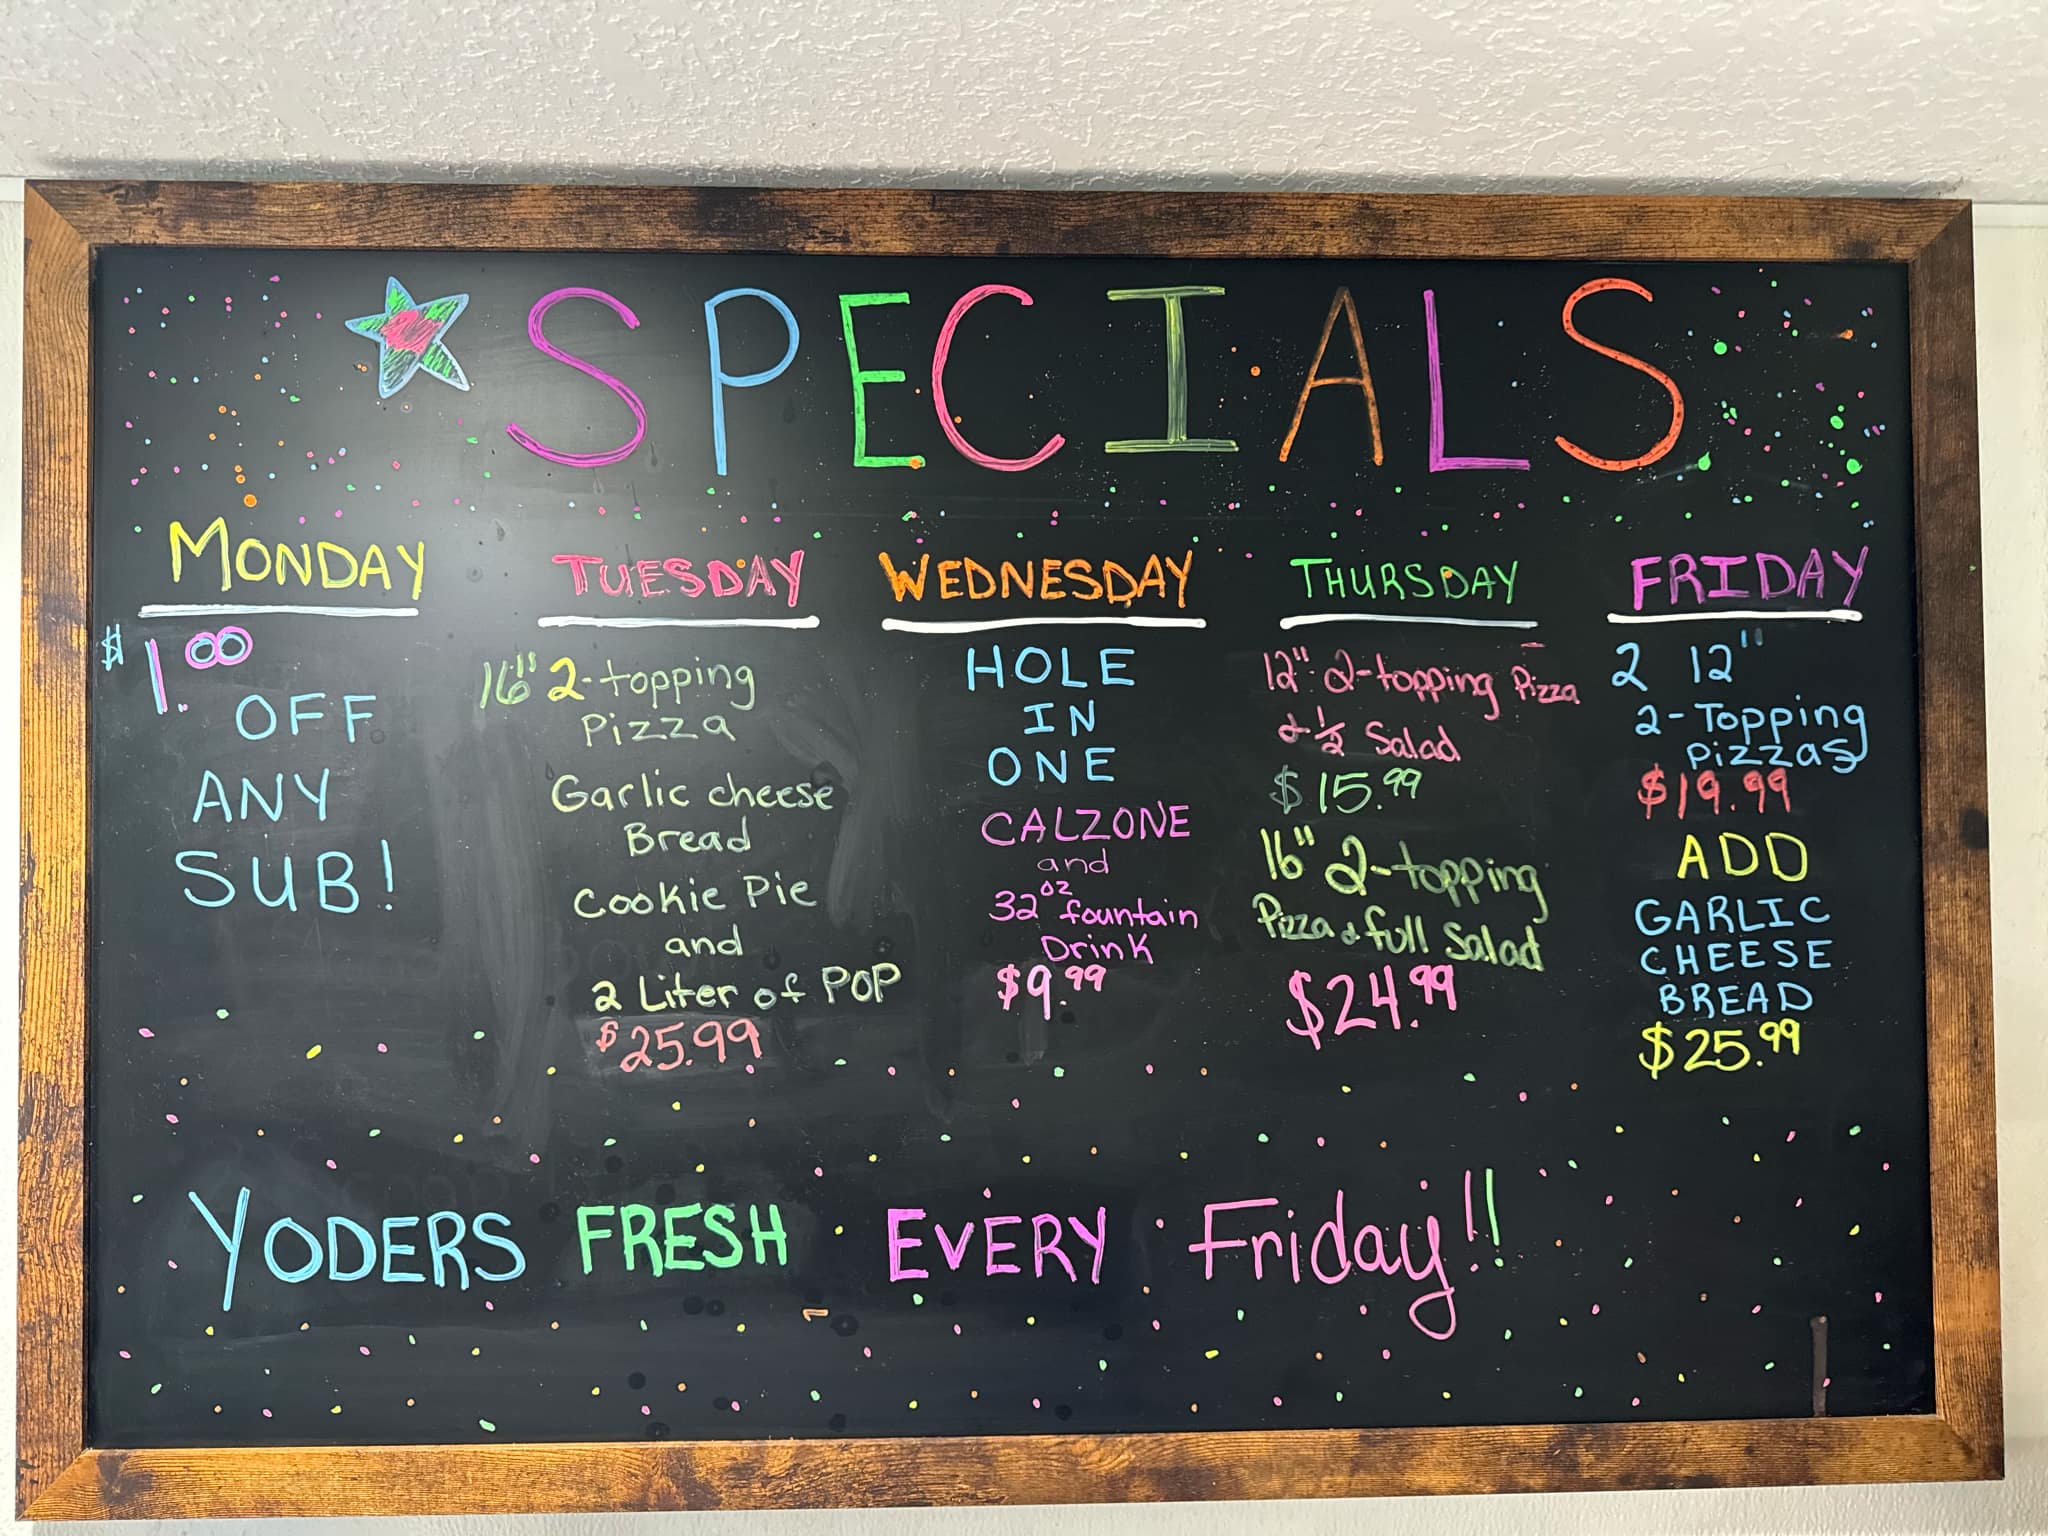 SPECIALS
MONDAY
$1.00
OFF
ANY
SUB!
TUESDAY
16" 2-topping
Pizza
Garlic cheese
Bread
Cookie Pie
and
2 Liter of POP
$25.99
WEDNESDAY
HOLE
IN
ONE
CALZONE
and
32 oz fountain
Drink
$9.99
THURSDAY
12" 2-topping Pizza
& ½ Salad
$15.99
16" 2-topping
Pizza & full Salad
$24.99
FRIDAY
2 12"
2-Topping
Pizzas
$19.99
ADD
GARLIC
CHEESE
BREAD
$25.99
YODERS FRESH EVERY Friday!!